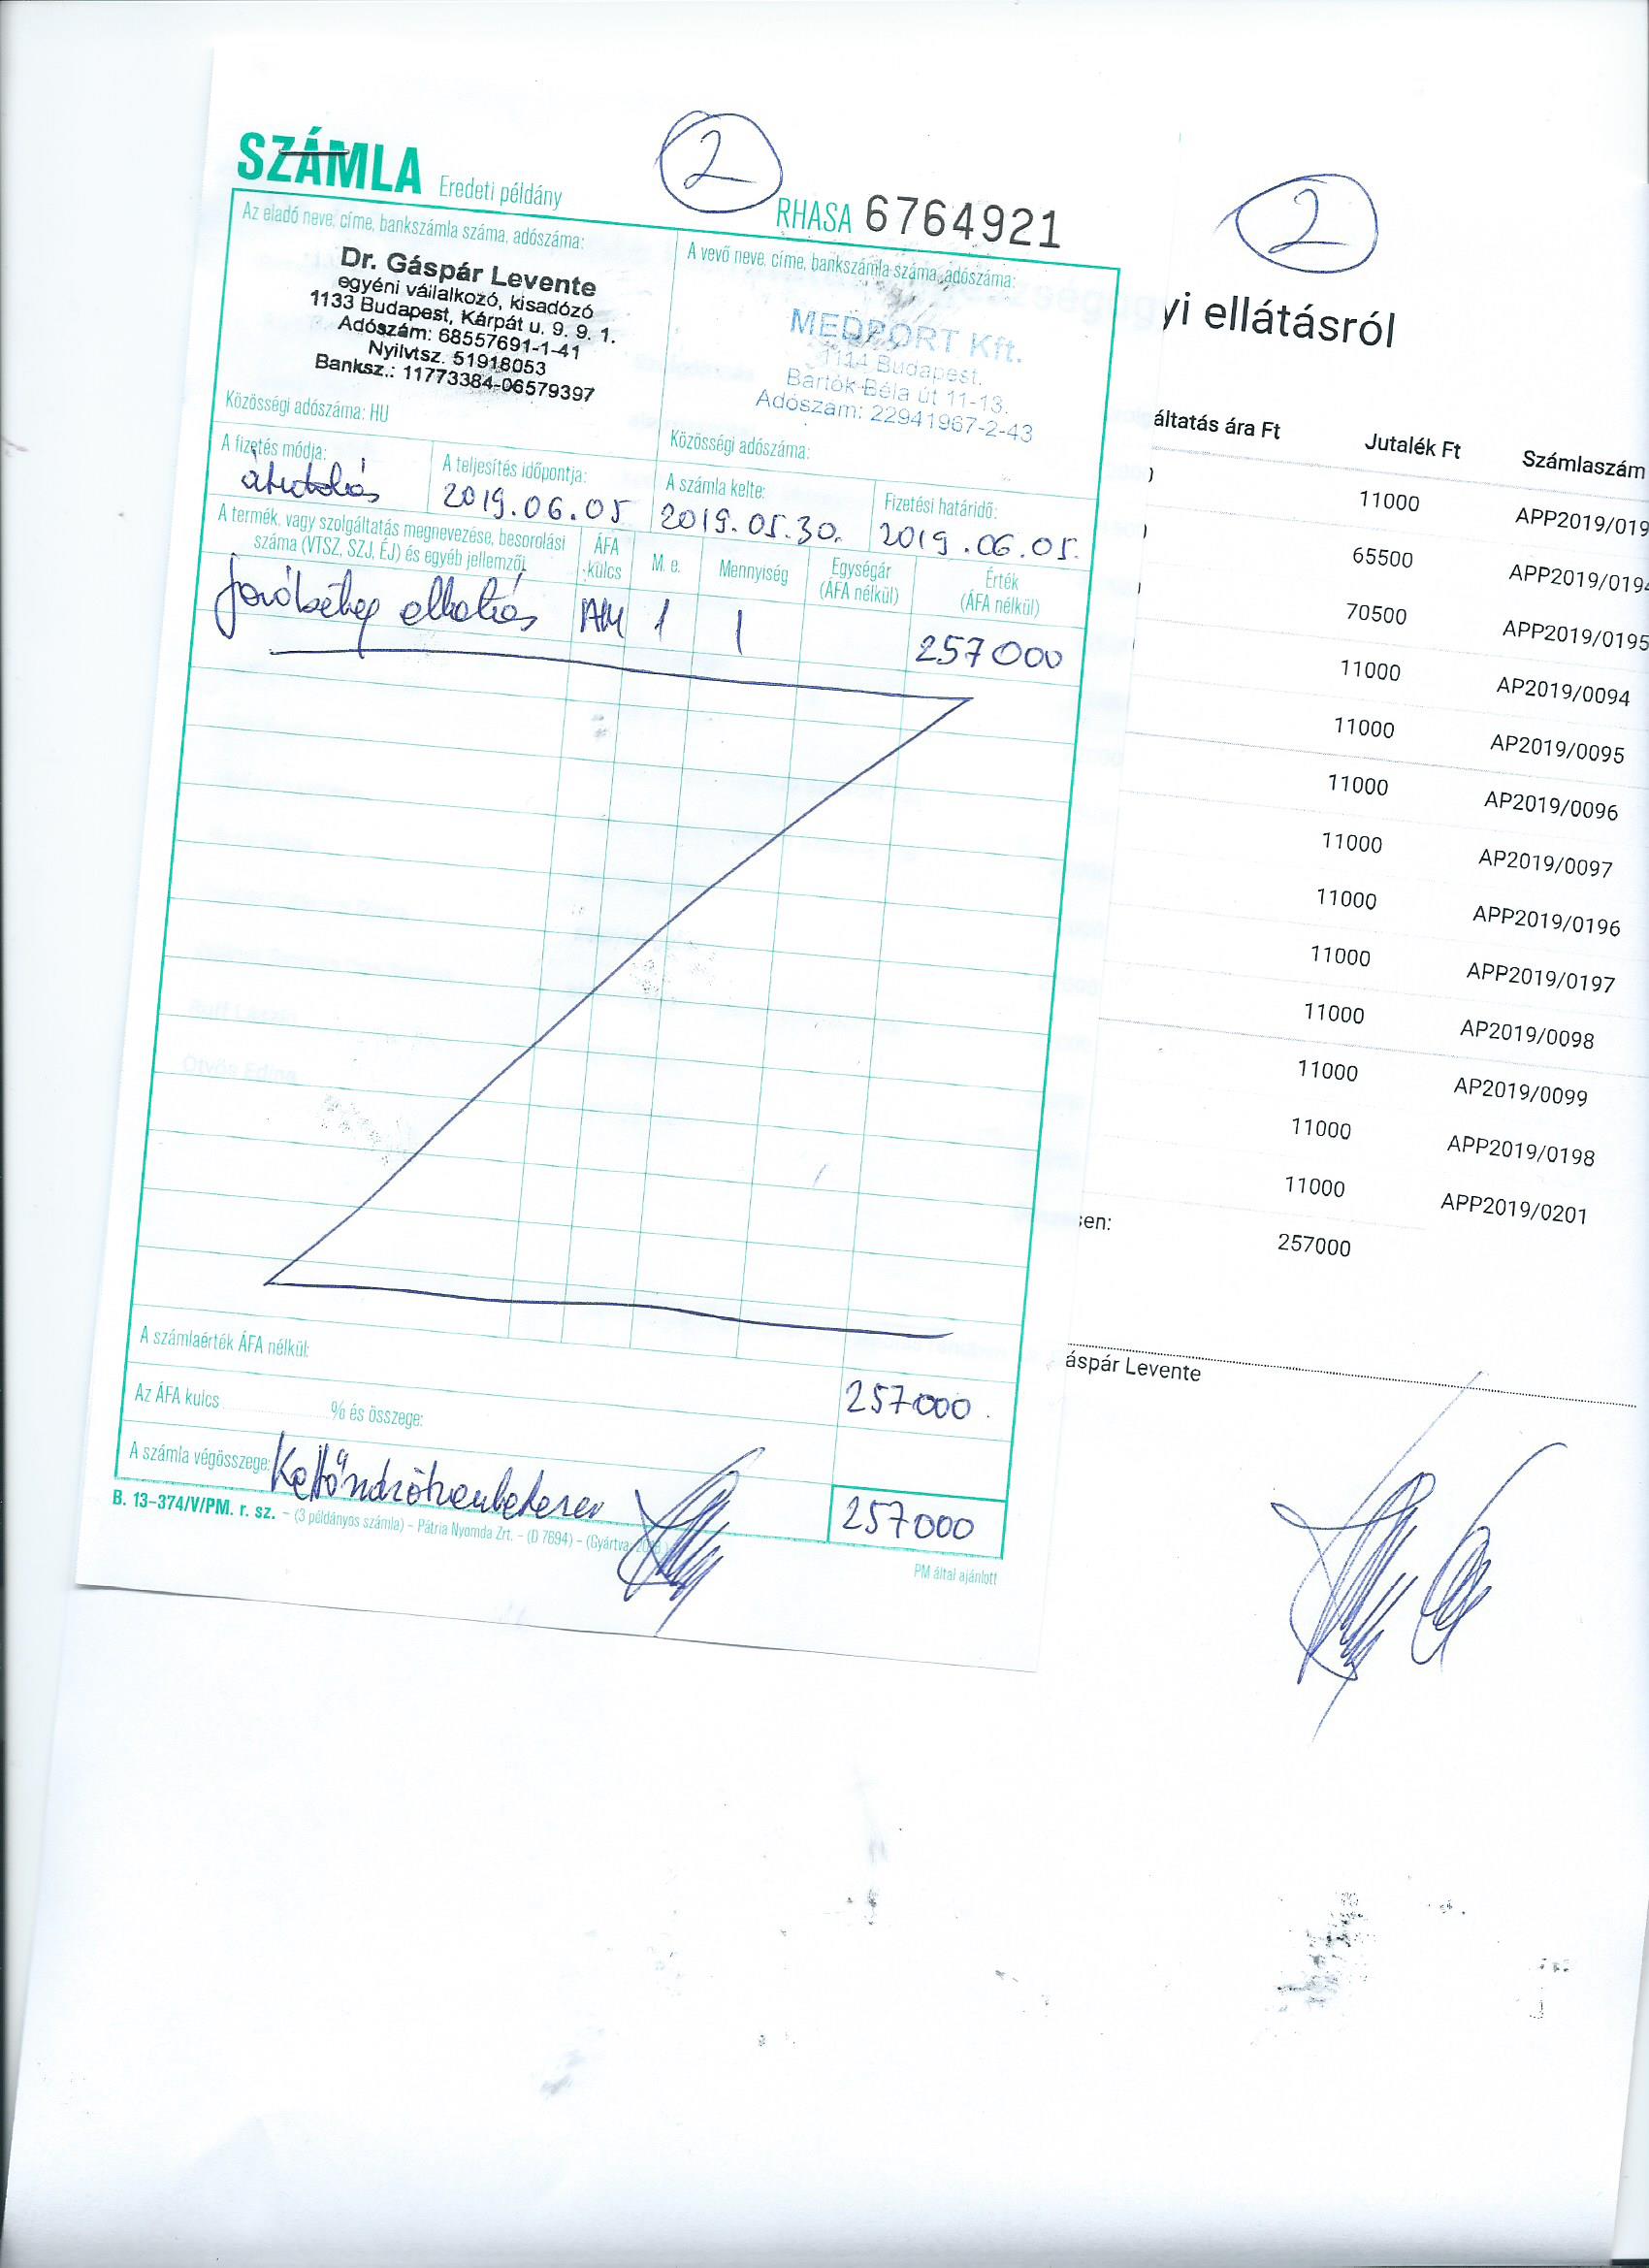 SZÁMLA Eredeti példány
2
RHASA 6764921
Az eladó neve, címe, bankszámla száma, adószáma:
Dr. Gáspár Levente
egyéni vállalkozó, kisadózó
1133 Budapest, Kárpát u. 9. 9. 1.
Adószám: 68557691-1-41
Nyilvtsz. 51918053
Banksz.: 11773384-06579397
Közösségi adószáma: HU
A vevő neve, címe, bankszámla száma, adószáma:
MEDPORT Kft.
1114 Budapest.
Bartók Béla út 11-13.
Adószam: 22941967-2-43
Közösségi adószáma:
A fizetés módja:
átutalás
A teljesítés időpontja:
2019.06.05
A számla kelte:
2019.05.30.
Fizetési határidő:
2019.06.05.
A termék, vagy szolgáltatás megnevezése, besorolási
száma (VTSZ, SZJ, ÉJ) és egyéb jellemzői
ÁFA
kulcs
M. e.
Mennyiség
Egységár
(ÁFA nélkül)
Érték
(ÁFA nélkül)
járóbeteg ellátás AM 1 1 257000
A számlaérték ÁFA nélkül:
257000.
Az ÁFA kulcs % és összege:
A számla végösszege:
257000
B. 13-374/V/PM. r. sz. – (3 példányos számla) – Pátria Nyomda Zrt. – (D 7694) – (Gyártva:
PM által ajánlott
2
yi ellátásról
áltatás ára Ft Jutalék Ft Számlaszám
11000 APP2019/019
65500 APP2019/0194
70500 APP2019/0195
11000 AP2019/0094
11000 AP2019/0095
11000 AP2019/0096
11000 AP2019/0097
11000 APP2019/0196
11000 APP2019/0197
11000 AP2019/0098
11000 AP2019/0099
11000 APP2019/0198
11000 APP2019/0201
sen: 257000
áspár Levente